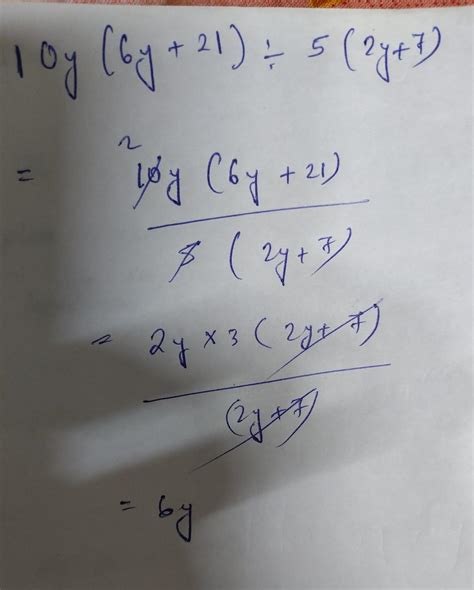 10y (6y + 21) ÷ 5 (2y+7)
2
= 10y (6y + 21)
5 (2y+7)
= 2y × 3 (2y+7)
(2y+7)
= 6y